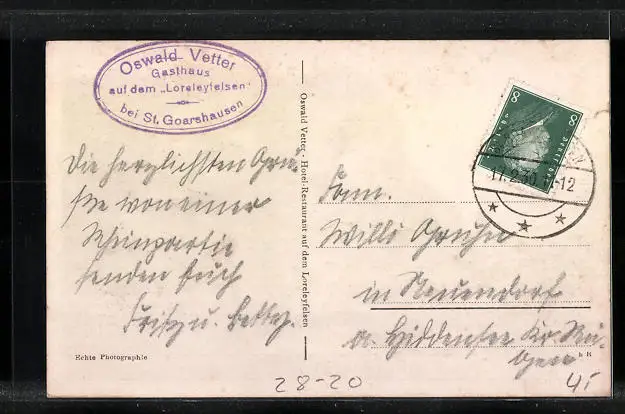 Oswald Vetter
Gasthaus
auf dem „Loreleyfelsen"
bei St. Goarshausen
Die herzlichsten Grü-
ße von einer
Rheinpartie
senden Euch
Fritz u. Betty.
Echte Photographie
Oswald Vetter - Hotel-Restaurant auf dem Loreleyfelsen
8 8
-12
Fam.
Willi
in Neuendorf
a. Hiddensee Kr. Rü-
gen
28-20